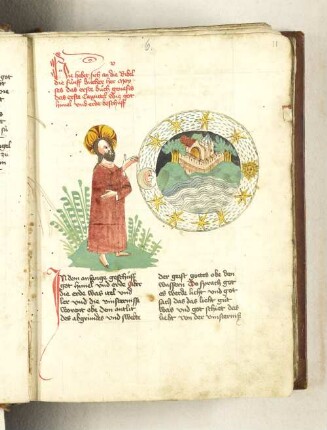 Hie hebet sich an die Bibel
die fünff bücher her moy
ses das erste buch genesis
das erste Capittel wie got
himel und erde beschuff
In dem anfange geschuff
got himel und erde aber
die erde was itel und
ler und die vinsterniß
worent obe dem antlit
des abgrundes und swebt
der geist gottes obe den
wassern Do sprach got
es werde liecht und got
sach das das liecht gut
was und got schiet das
liecht von der vinsterniß